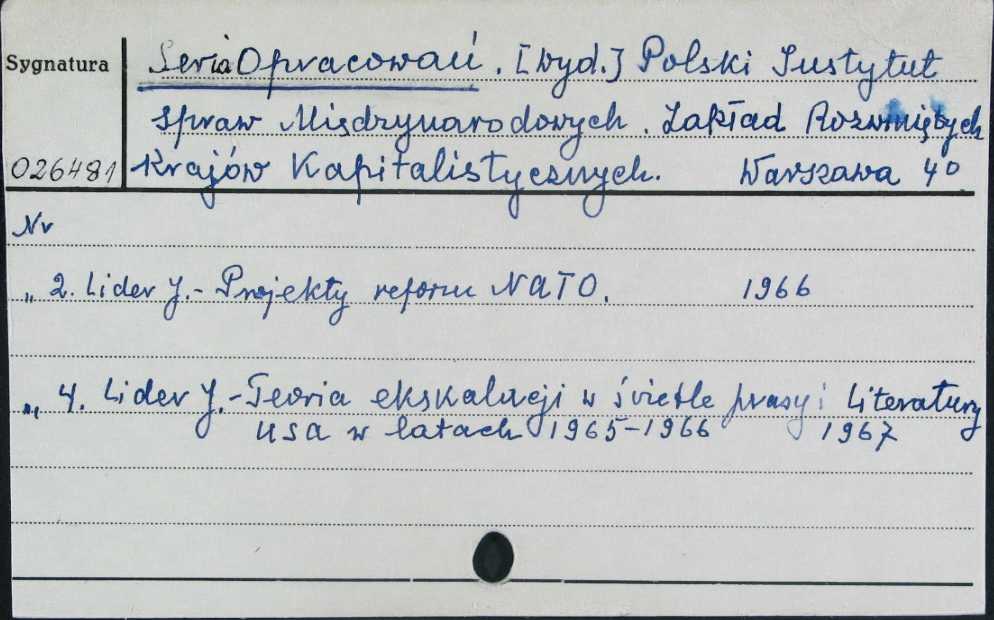 Sygnatura
Seria Opracowań. [Wyd.] Polski Instytut
Spraw Międzynarodowych. Zakład Rozwiniętych
026481 Krajów Kapitalistycznych. Warszawa 4°
Nr
„ 2. Lider J.- Projekty reform NATO. 1966
„ 4. Lider J.- Teoria ekskalacji w świetle prasy i Literatury
USA w latach 1965-1966 1967